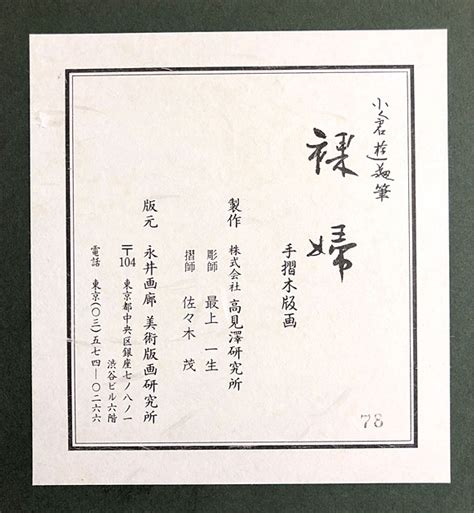 小倉遊亀筆
裸婦
手摺木版画
製作 株式会社 高見澤研究所
彫師 最上 一生
摺師 佐々木 茂
版元 永井画廊 美術版画研究所
〒104 東京都中央区銀座七ノ八ノ一
渋谷ビル六階
電話 東京(〇三)五七四―〇二六六
78